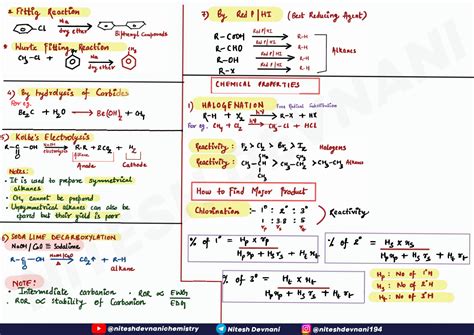 2 Fittig Reaction
Cl Na
dry ether
Biphenyl Compounds
3 Wurtz fitting Reaction
CH3-Cl + Cl Na
dry ether CH3
4) By hydrolysis of Carbides
For eg.
Be2C + H2O → Be(OH)2 + CH4
5) Kolbe's Electrolysis
R-C-OH Electrolysis R-R + CO2 + H2
O alkane
Anode Cathode
Notes:
• It is used to prepare symmetrical
alkanes
• CH4 cannot be prepared
• Unsymmetrical alkanes can also be
prepared but their yield is poor
6) SODA LIME DECARBOXYLATION
NaOH/CaO ≡ Sodalime
R-C-OH NaOH/CaO CO2↑ + R-H
O alkane
NOTE:
• Intermediate carbanion • ROR ∝ EWG
• ROR ∝ stability of Carbanion EDG
7) By Red P/HI (Best Reducing Agent)
R-COOH Red P/HI R-H
R-CHO Red P/HI R-H
R-OH Red P/HI R-H
R-X R-H
Alkanes
CHEMICAL PROPERTIES
1) HALOGENATION Free Radical Substitution
R-H + X2 hv R-X + HX
For eg. CH4 + Cl2 hv CH3-Cl + HCl
Reactivity: F2 > Cl2 > Br2 > I2 Halogens
Reactivity: Alkanes
How to Find Major Product
Chlorination :- 1° : 2° : 3°
1 : 3.8 : 5
Reactivity
% of 1° =
% of 2° =
Hp: No of 1°H
Hs: No of 2°H
Ht: No of 3°H
@niteshdevnanichemistry Nitesh Devnani @niteshdevnani194